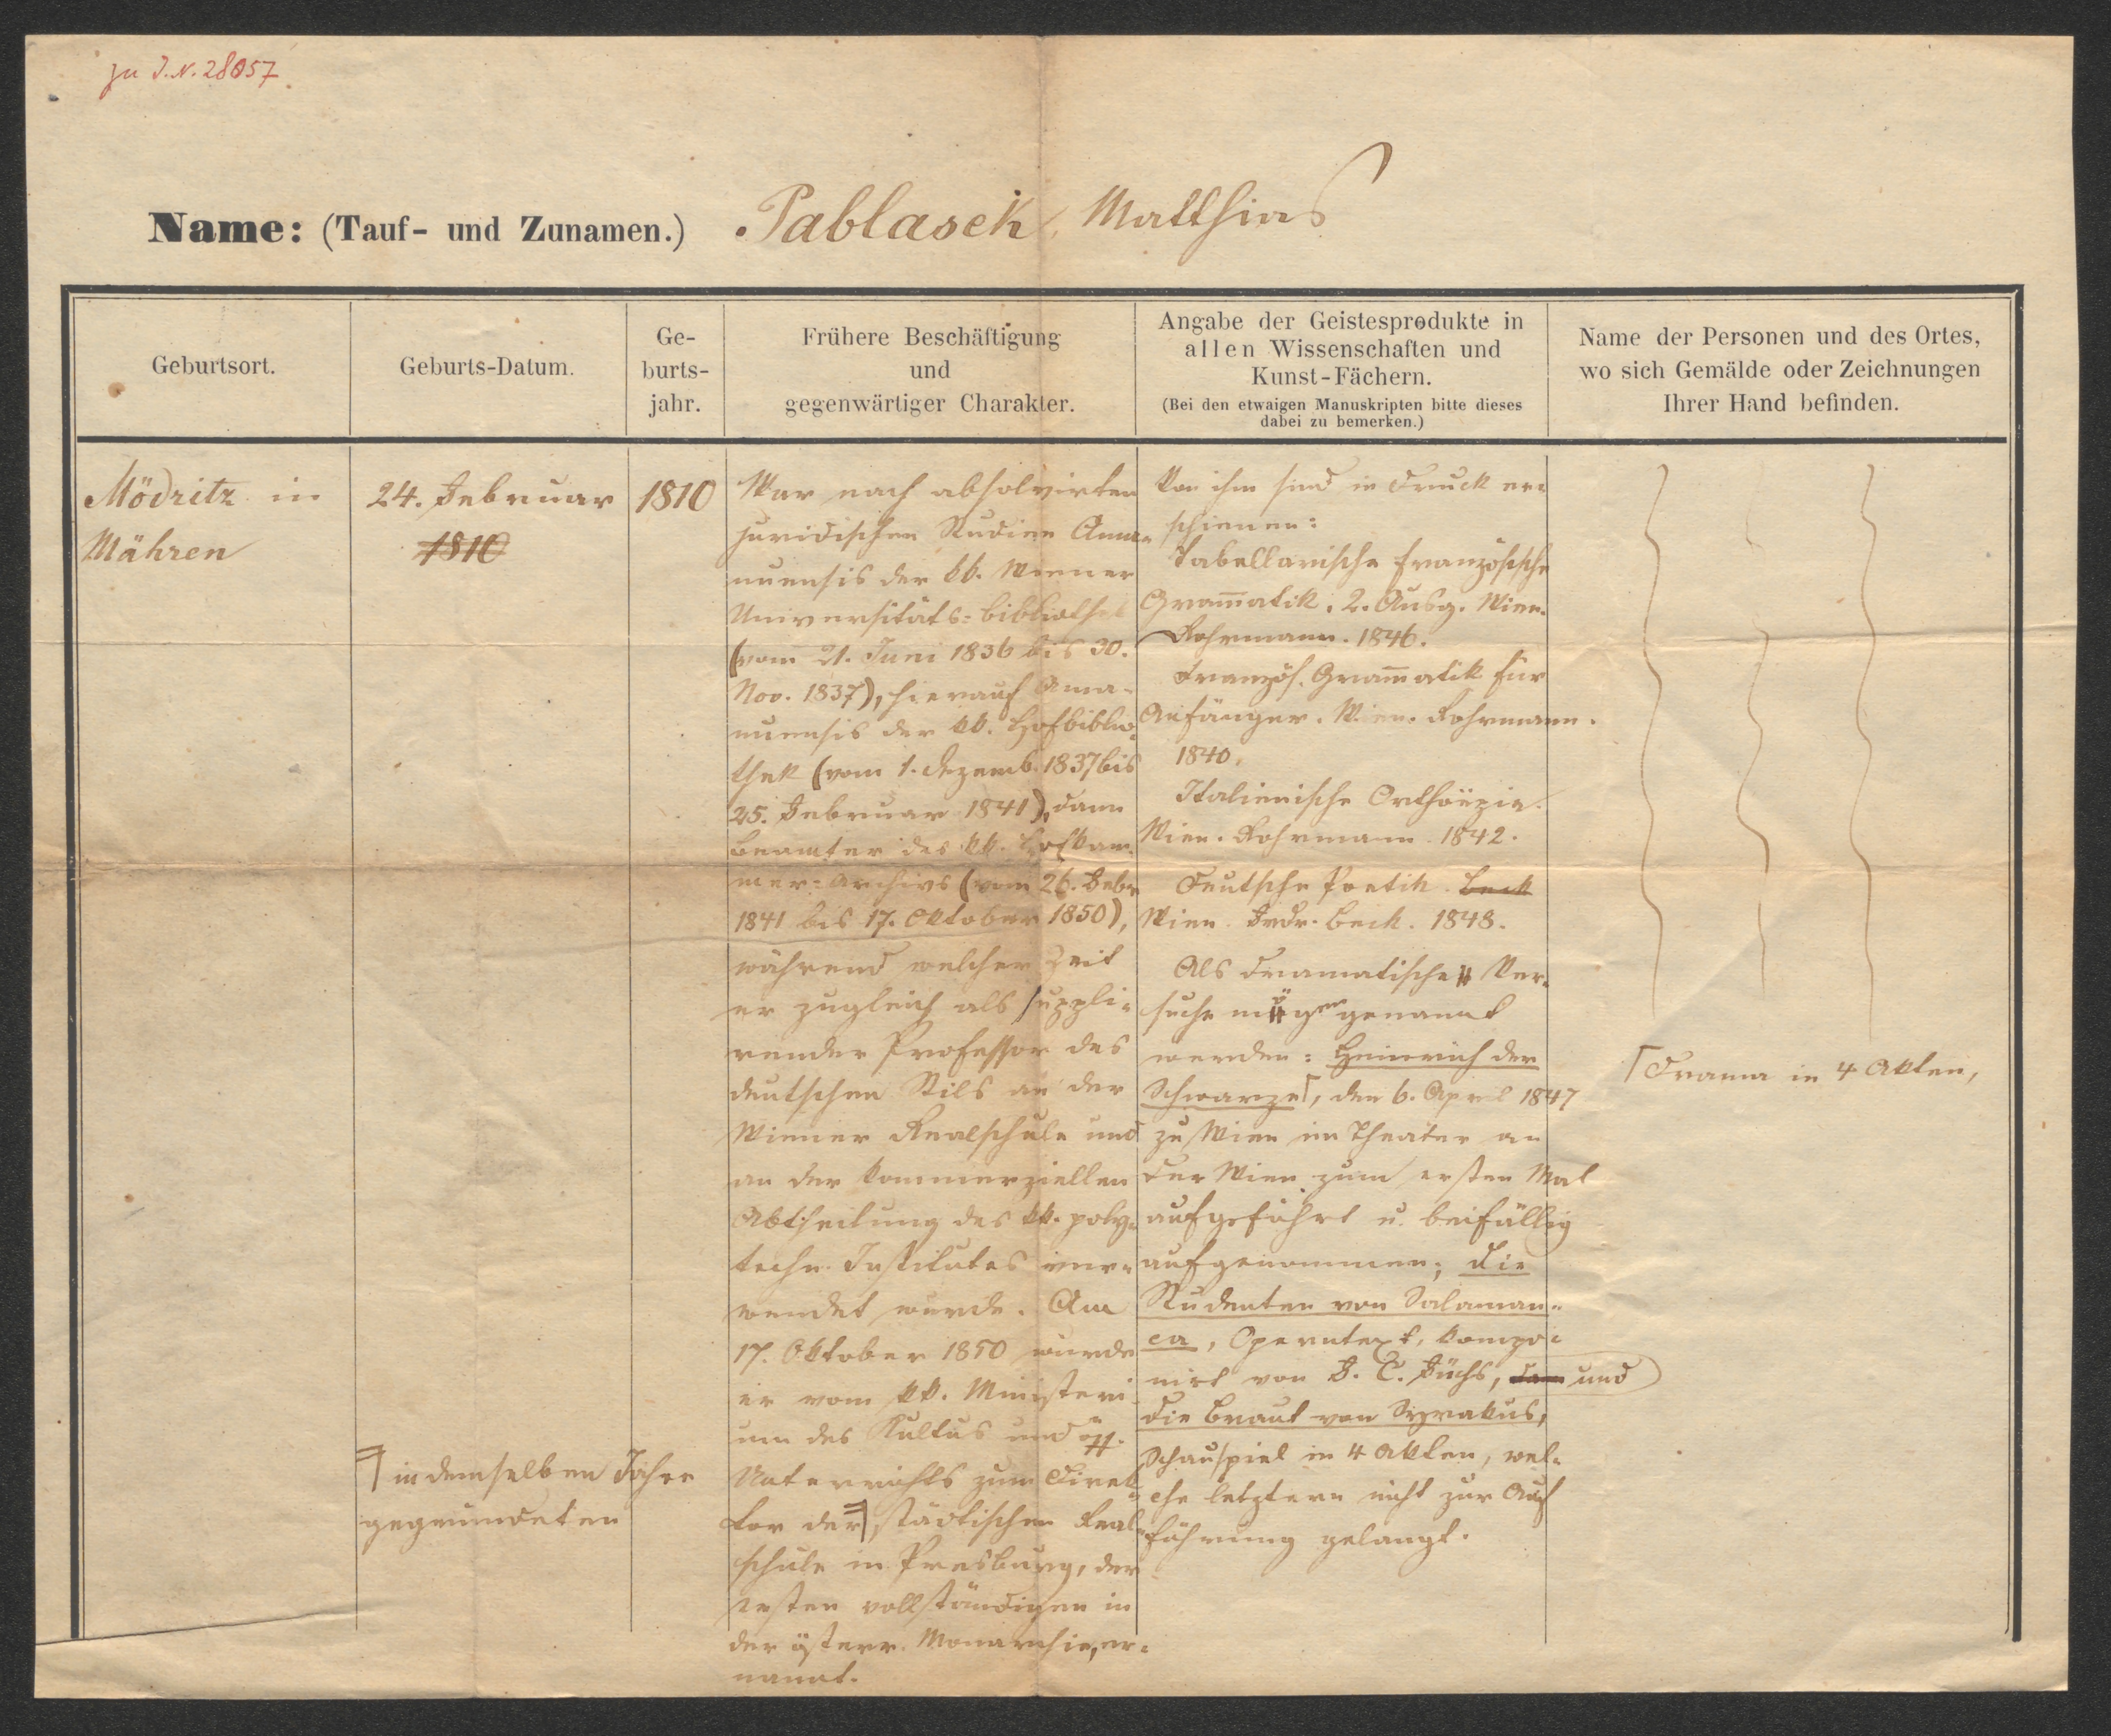 zu I.N. 28057.
Name: (Tauf- und Zunamen.) Pablasek Matthias
Geburtsort.
Geburts-Datum.
Ge-
burts-
jahr.
Frühere Beschäftigung
und
gegenwärtiger Charakter.
Angabe der Geistesprodukte in
allen Wissenschaften und
Kunst-Fächern.
(Bei den etwaigen Manuskripten bitte dieses
dabei zu bemerken.)
Name der Personen und des Ortes,
wo sich Gemälde oder Zeichnungen
Ihrer Hand befinden.
Mödritz in
Mähren
24. Februar
1810
1810
War nach absolvirten
juridischen Studien Ama-
nuensis der kk. Wiener
Universitäts-bibliothek
(vom 21. Juni 1836 bis 30.
Nov. 1837), hierauf Ama-
nuensis der kk. Hofbiblio-
thek (vom 1. Dezemb. 1837 bis
25. Februar 1841), dann
Beamter des kk. Hofkam-
mer-Archivs (vom 26. Febr
1841 bis 17. Oktober 1850),
während welcher Zeit
er zugleich als suppli-
render Professor des
deutschen Stils an der
Wiener Realschule und
an der kommerziellen
Abtheilung des kk. poly-
techn. Institutes ver-
wendet wurde. Am
17. Oktober 1850 wurde
er vom kk. Ministeri
um des Kultus und öff.
Unterrichts zum Direk-
tor der städtischen Real-
schule in Presburg, der
ersten vollständigen in
der österr. Monarchie, er-
nannt.
in demselben Jahre
gegründeten
Von ihm sind in Druck er-
schienen:
Tabellarische französische
Grammatik. 2. Ausg. Wien.
Rohrmann. 1846.
Französ. Grammatik für
Anfänger. Wien. Rohrmann.
1840.
Italienische Orthoëpie.
Wien. Rohrmann. 1842.
Deutsche Poetik. Beck
Wien. Frdr. Beck. 1848.
Als dramatische Ver-
suche mögen genannt
werden: Heinrich der
Schwarze, den 6. April 1847
zu Wien im Theater an
der Wien zum ersten Mal
aufgeführt u. beifällig
aufgenommen; die
Studenten von Salaman-
ca, Operntext, kompo-
nirt von F. C. Füchs, dann und
die Braut von Syrakus,
Schauspiel in 4 Akten, wel-
che letztern nicht zur Auf
führung gelangt.
Drama in 4 Akten,